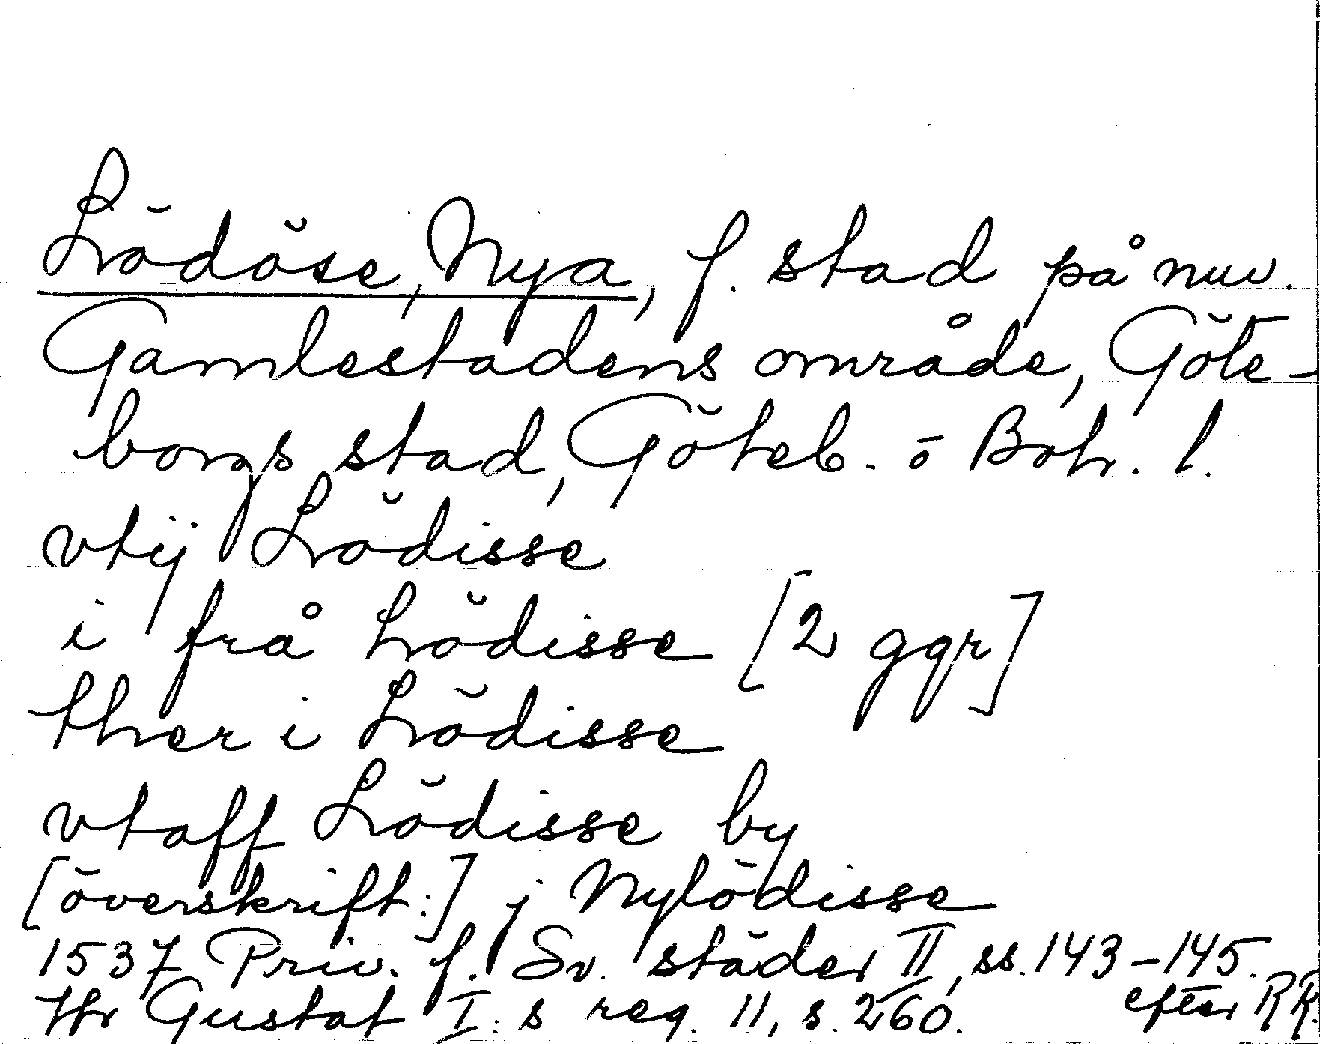 Lödöse, Nya, f. stad på nuv.
Gamlestadens område, Göte-
borgs stad, Göteb. o Boh. l.
vtij Lödisse
i frå Lödisse [2 ggr]
ther i Lödisse
vtaff Lödisse by
[överskrift:] j Nylödisse
1537 Priv. f. Sv. städer II, ss. 143-145.
Hr Gustaf I:s reg. 11, s. 260. efter RR.